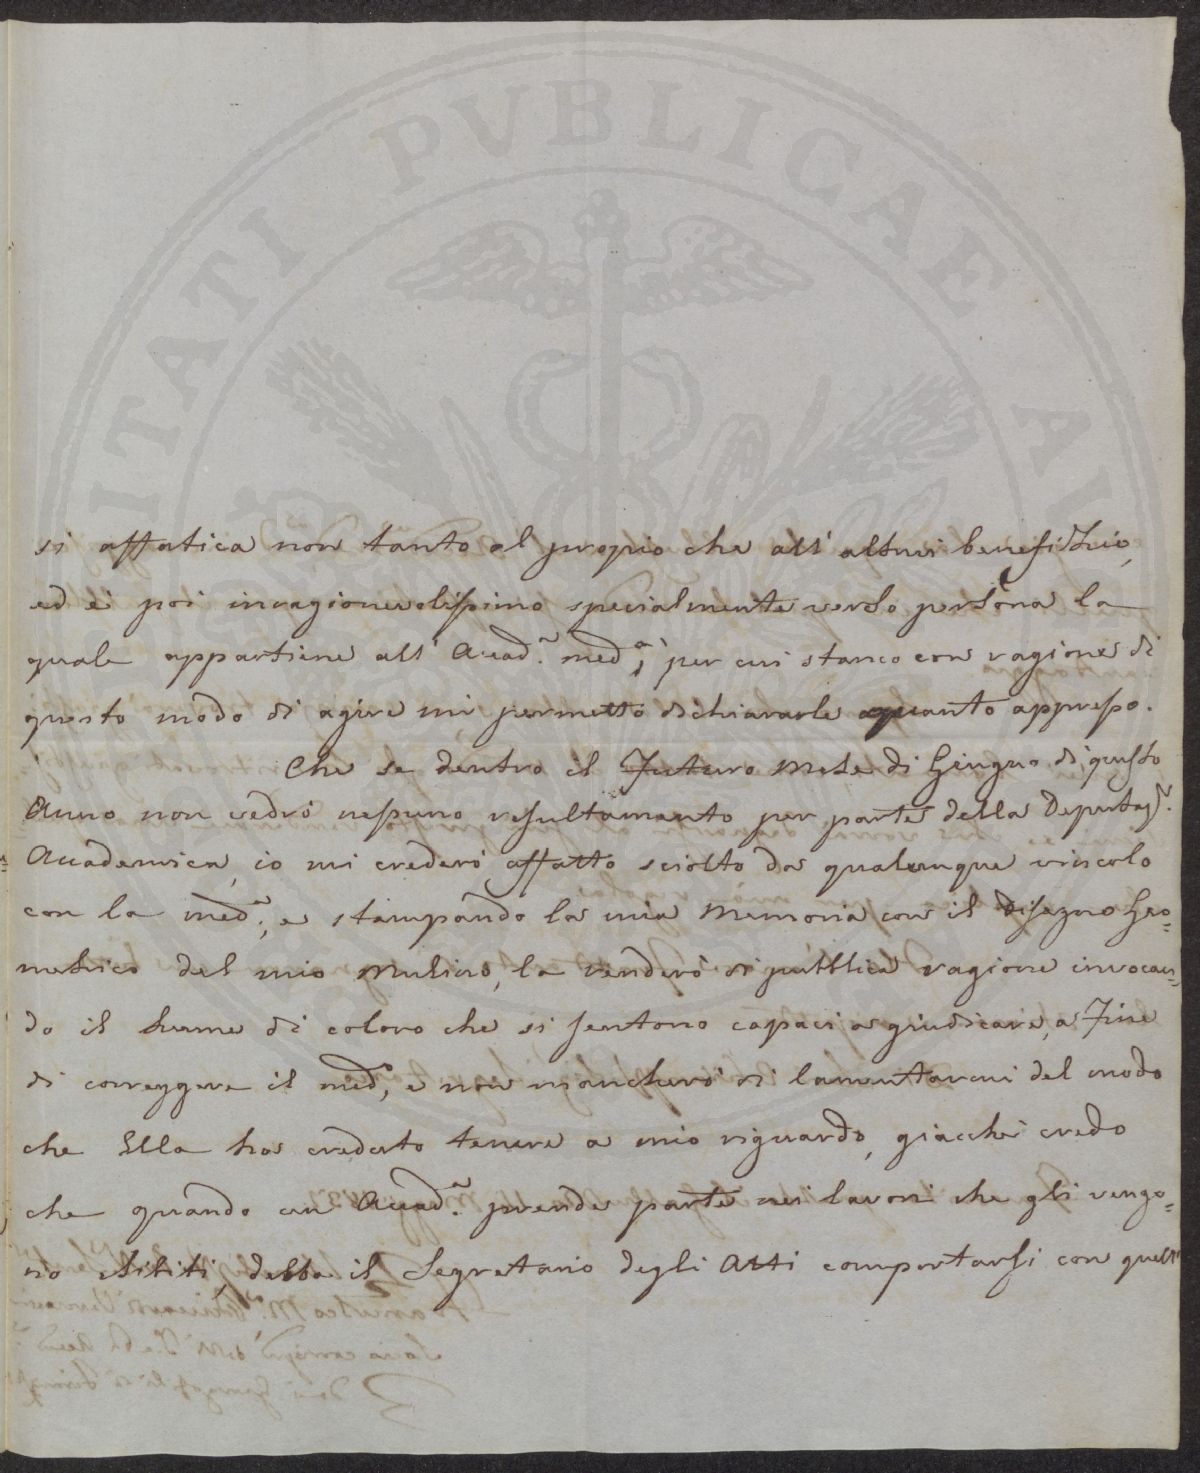 PVBLICAE
ITATI
si affatica non tanto al proprio che all' altrui benefizio,
ed è poi irragionevolissimo specialmente verso persona la
quale appartiene all' Accad.a med.a; per cui stanco con ragione di
questo modo di agire mi permetto dichiararle quanto appresso.
Che se dentro il Futuro Mese di Giugno di questo
Anno non vedrò nessuno resultamento per parte della Deputaz.e
Accademica, io mi crederò affatto sciolto da qualunque vincolo
con la med.a, e stampando la mia Memoria con il Disegno Geo=
metrico del mio Mulino, la renderò di pubblica ragione invocan=
do il lume di coloro che si sentono capaci a giudicare, a Fine
di correggere il med.o, e non mancherò di lamentarmi del modo
che Ella ha creduto tenere a mio riguardo, giacchè credo
che quando un Accad.a prende parte nei lavori che gli vengo=
no esibiti, debba il Segretario degli Atti comportarsi con quell'